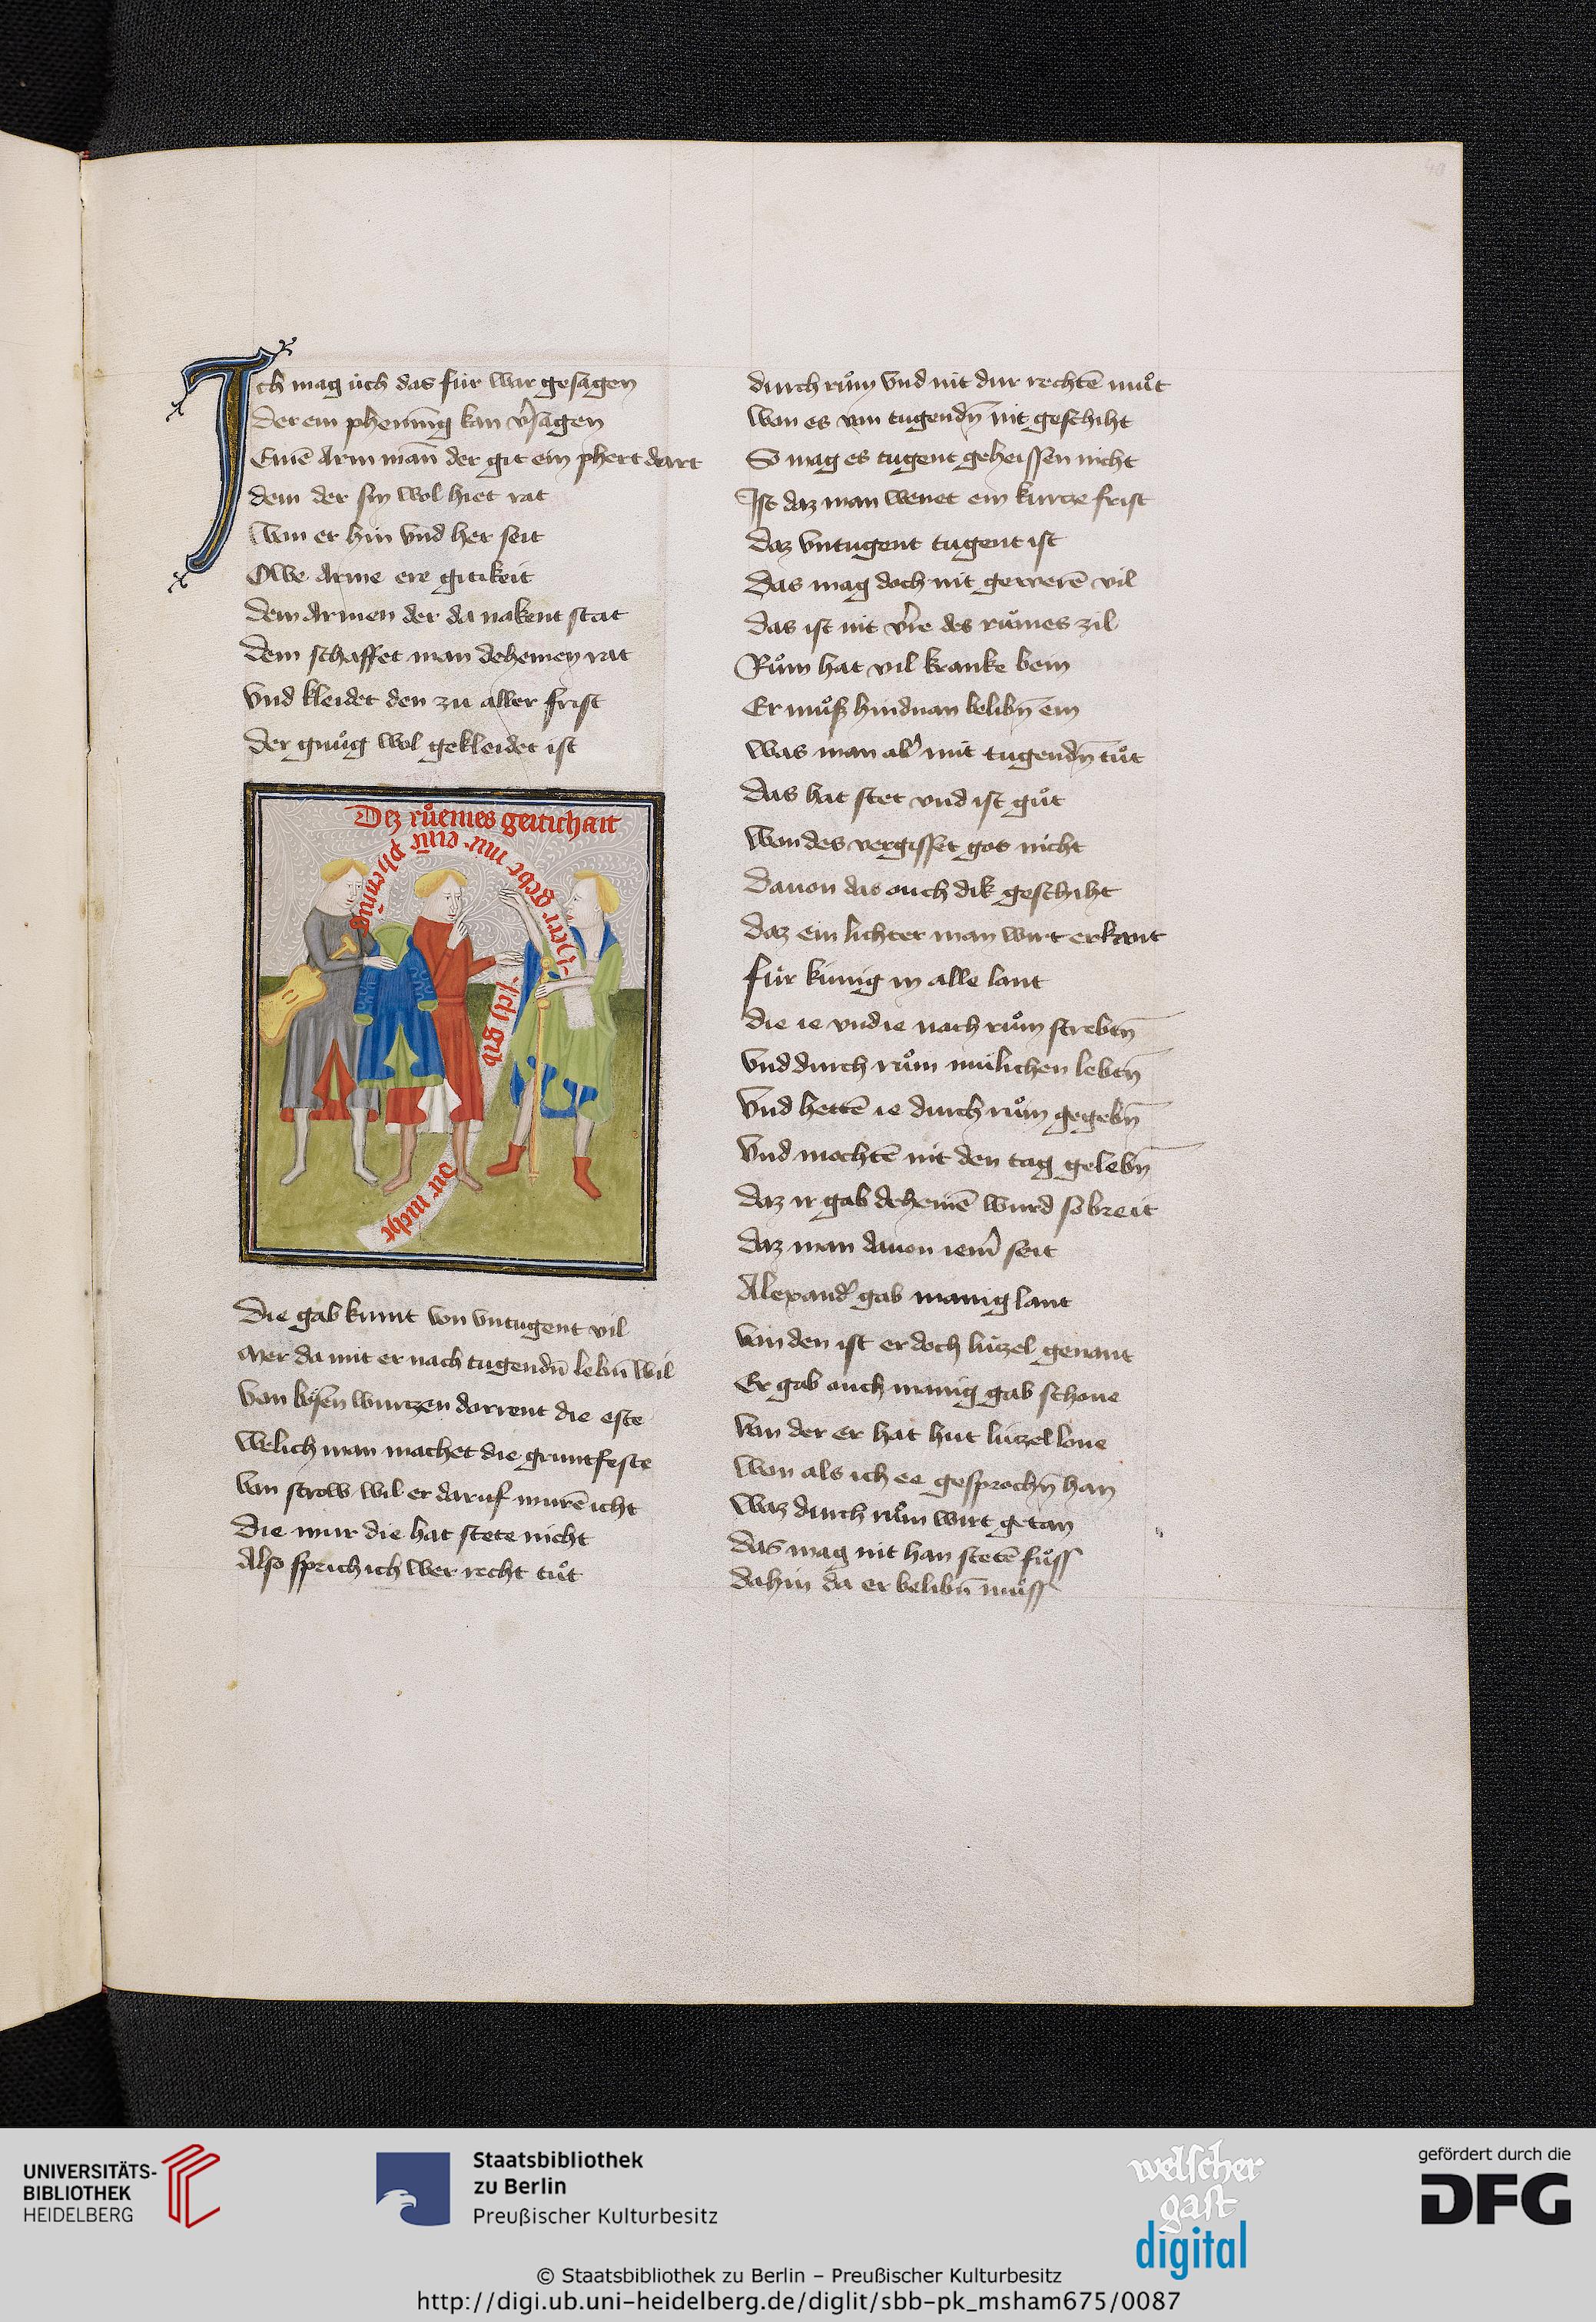 Ich mag úch das für war gesagen
der ein phenning kan v̾sagen
Einē Arm man̄ der git ein phert dort
dem der sin wol hiet rat
Wan er hin vnd her seit
Owe Arme ere gitikeit
dem Armen der da nakent stat
dem schaffet man dehemen rat
Vnd kleidet den zu aller frist
der gnuͦg wol gekleidet ist
Dez rüemes geitichait
Herr gebt mir eiñ phening
Ich gib
dir nicht
Die gab kumt von vntugent vil
Mer da mit er nach tugendn̄ lebn̄ wil
Von bo̍sen wurtzen dorrent die este
Welich man machet die gruntfeste
Von strow wil er daruf murē icht
Die mur die hat stete nicht
Also sprich ich wer recht tuͦt
durch ruͦm vnd nit dur rechtē muͦt
Wan es von tugendn̄ nit geschiht
So mag es tugent geheissen nicht
Ist daz man wenet ein kurtze frist
daz vntugent tugent ist
Das mag doch nit gewerē vil
Das ist nit v̾re des ruͦmes zil
Ruͦm hat vil kranke bein
Er muͦsz hindnan belibn̄ ein
Was man ab̾ mit tugendn̄ tuͦt
Das hat stet vnd ist guͦt
Wan des vergisset got nicht
Dauon das ouch dik geschiht
Daz ein lichter man wirt erkant
für künig in alle lant
die ie vnd ie nach ruͦm strebtn̄
Vnd durch ruͦm mülichen lebtn̄
Vnd hettē ie durch ruͦm gegebn̄
Vnd mochtē nit den tag gelebn̄
Daz ir gab dehemē wurd so breit
Daz man dauon iem̾ seit
Alexand̾ gab manig lant
Von den ist er doch lützel genant
Er gab ouch manig gab schone
Von der er hat hut lützel lone
Won als ich ee gesprochn̄ han
Waz durch ruͦm wirt getan
Das mag nit han stetē fuͦss
Dahin da er belibn̄ muͦss
UNIVERSITÄTS-
BIBLIOTHEK
HEIDELBERG
Staatsbibliothek
zu Berlin
Preußischer Kulturbesitz
welscher
gast
digital
gefördert durch die
DFG
© Staatsbibliothek zu Berlin – Preußischer Kulturbesitz
http://digi.ub.uni-heidelberg.de/diglit/sbb-pk_msham675/0087